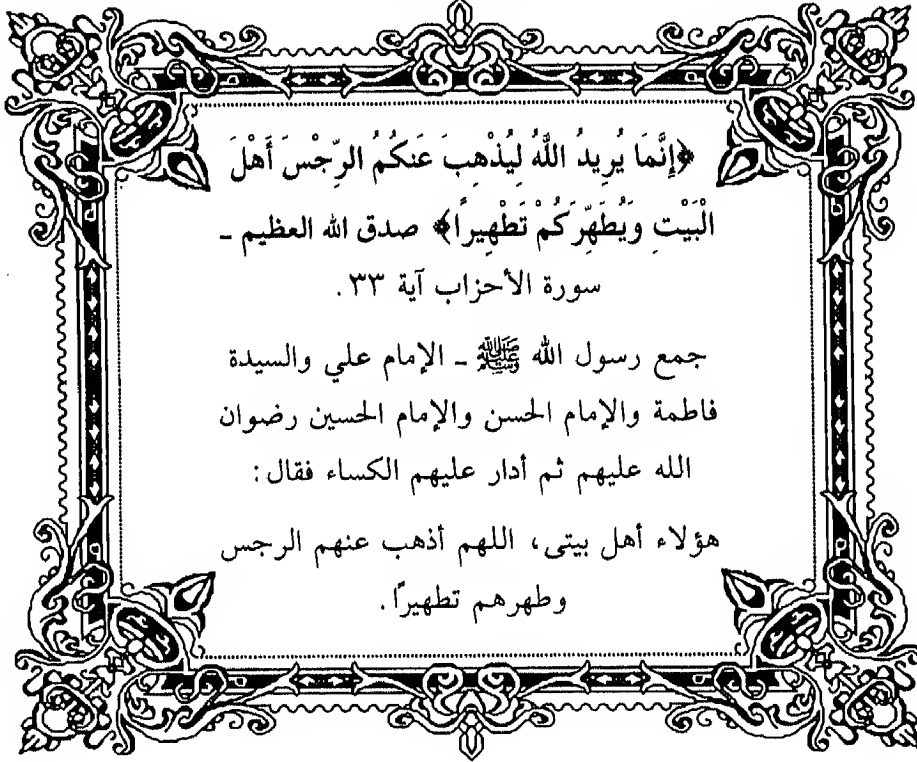 ﴿إِنَّمَا يُرِيدُ اللَّهُ لِيُذْهِبَ عَنكُمُ الرِّجْسَ أَهْلَ
الْبَيْتِ وَيُطَهِّرَكُمْ تَطْهِيرًا﴾ صدق الله العظيم ـ
سورة الأحزاب آية ٣٣ .
جمع رسول الله ﷺ ـ الإمام علي والسيدة
فاطمة والإمام الحسن والإمام الحسين رضوان
الله عليهم ثم أدار عليهم الكساء فقال :
هؤلاء أهل بيتى، اللهم أذهب عنهم الرجس
وطهرهم تطهيرًا .